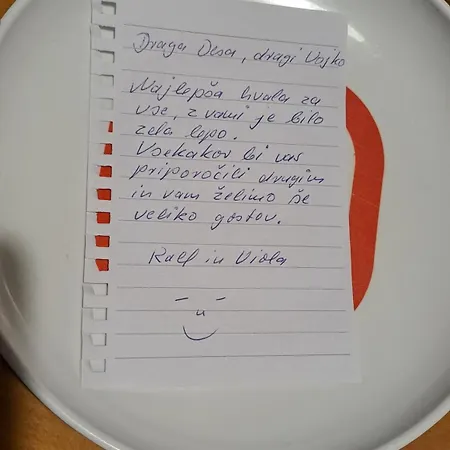 Draga Desa, dragi Vojko
Najlepša hvala za
vse, z vami je bilo
zelo lepo.
Vsekakor bi vas
priporočili drugim
in vam želimo še
veliko gostov.
Ralf in Viola